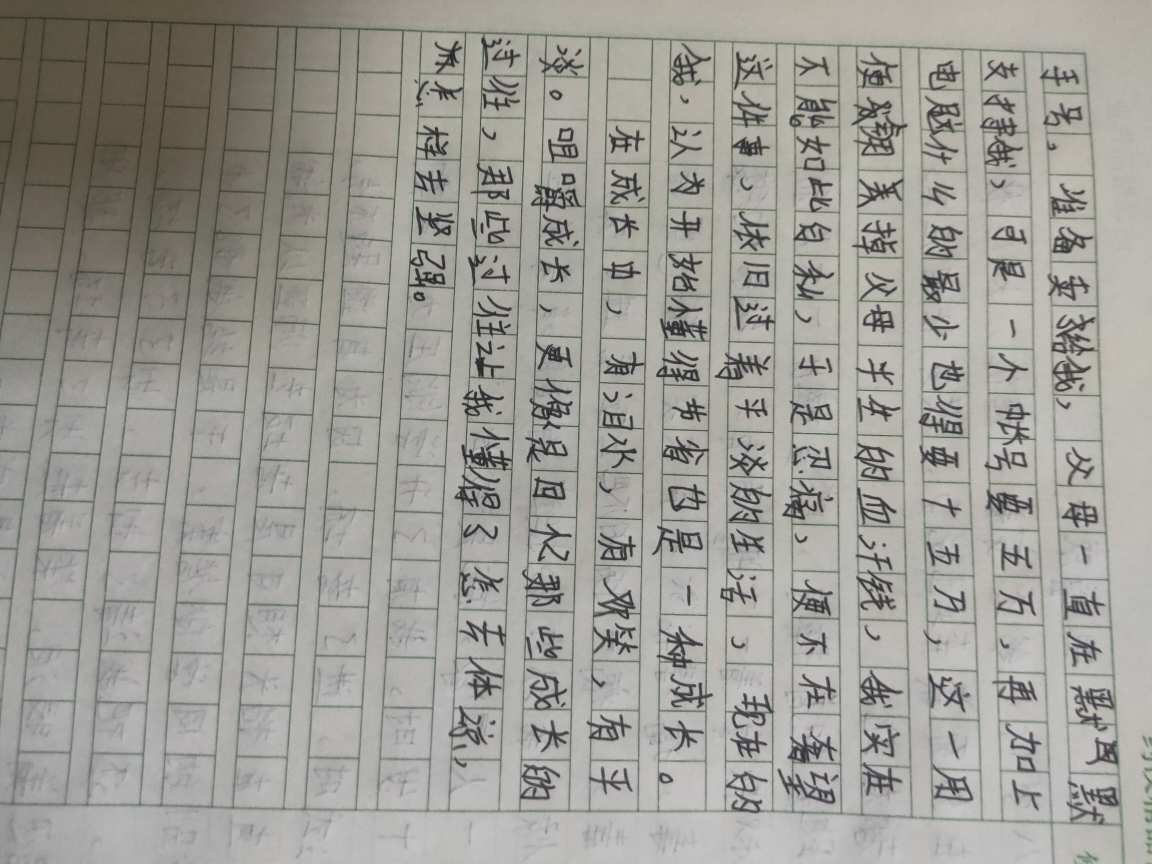 手号，准备卖给我，父母一直在默默
支持我，可是一个帐号要五万，再加上
电脑什么的最少也得要十五万，这一用
便减掉父母半生的血汗钱，我实在
不能如此自私，于是忍痛，便不在奢望
这件事，依旧过着平淡的生活，现在的
我，认为开始懂得节省也是一种成长。
在成长中，有泪水，有欢笑，有平
淡。咀嚼成长，更像是回忆那些成长的
过往，那些过往让我懂得了怎去体谅，
怎样去坚强。